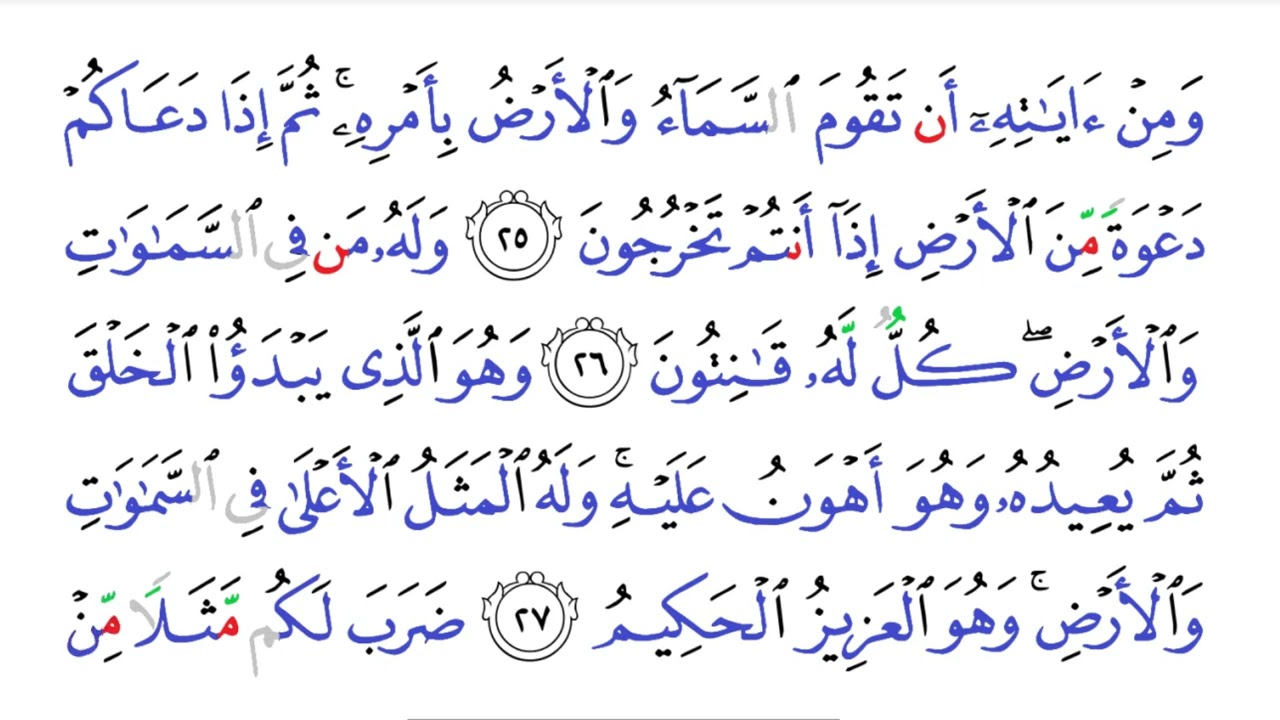 وَمِنۡ ءَايَٰتِهِۦٓ أَن تَقُومَ ٱلسَّمَآءُ وَٱلۡأَرۡضُ بِأَمۡرِهِۦۚ ثُمَّ إِذَا دَعَاكُمۡ
دَعۡوَةٗ مِّنَ ٱلۡأَرۡضِ إِذَآ أَنتُمۡ تَخۡرُجُونَ ٢٥ وَلَهُۥ مَن فِي ٱلسَّمَٰوَٰتِ
وَٱلۡأَرۡضِۖ كُلّٞ لَّهُۥ قَٰنِتُونَ ٢٦ وَهُوَ ٱلَّذِي يَبۡدَؤُاْ ٱلۡخَلۡقَ
ثُمَّ يُعِيدُهُۥ وَهُوَ أَهۡوَنُ عَلَيۡهِۚ وَلَهُ ٱلۡمَثَلُ ٱلۡأَعۡلَىٰ فِي ٱلسَّمَٰوَٰتِ
وَٱلۡأَرۡضِۚ وَهُوَ ٱلۡعَزِيزُ ٱلۡحَكِيمُ ٢٧ ضَرَبَ لَكُم مَّثَلٗا مِّنۡ